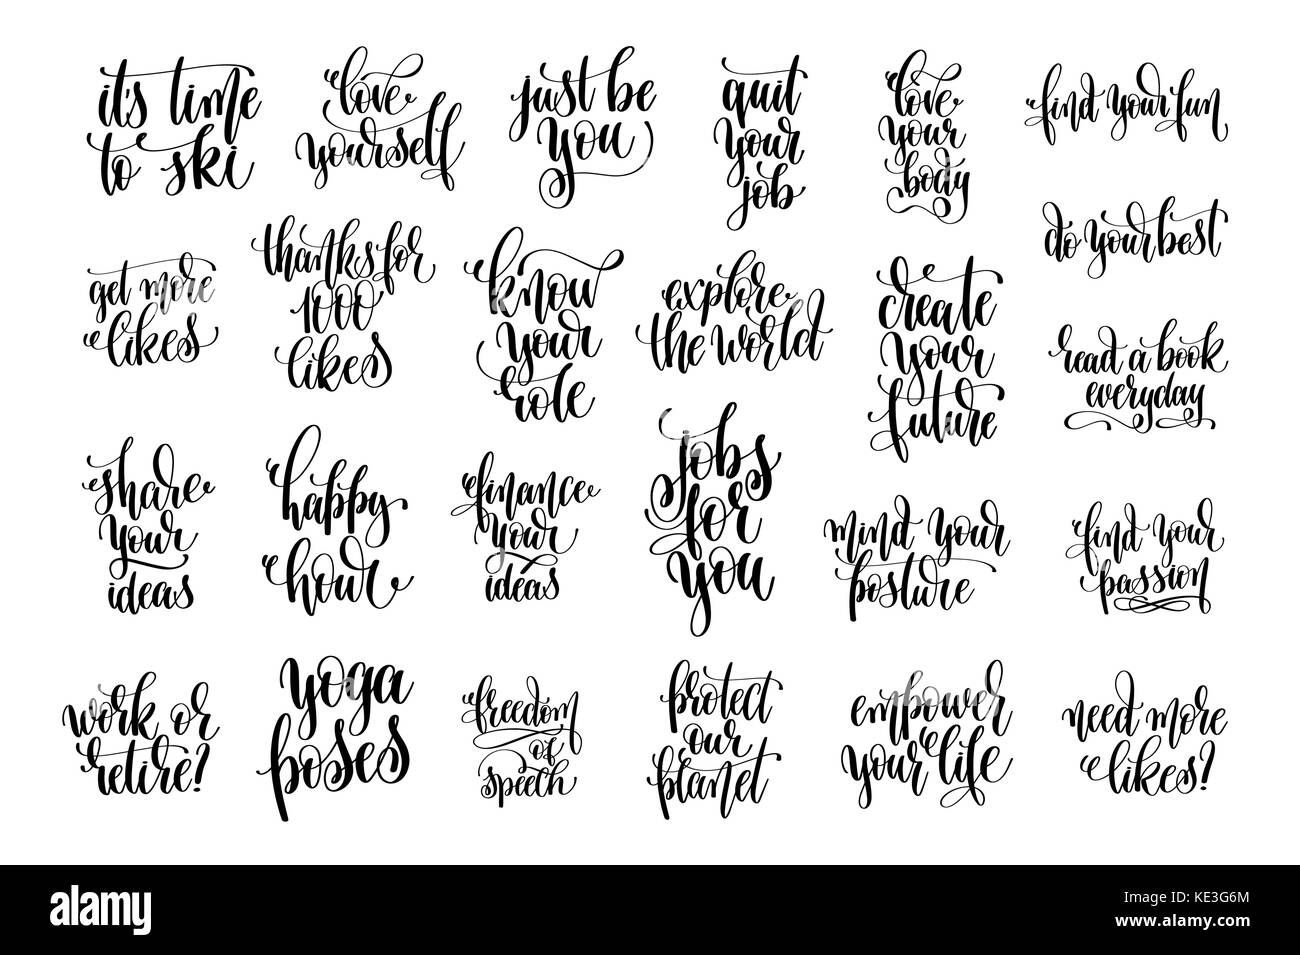 it's time
to ski
love
yourself
just be
you
quit
your
job
love
your
body
find your fun
do your best
get more
likes
thanks for
1000
likes
know
your
role
explore
the world
create
your
future
read a book
everyday
share
your
ideas
happy
hour
finance
your
ideas
jobs
for
you
mind your
posture
find your
passion
work or
retire?
yoga
poses
freedom
of
speech
protect
our
planet
empower
your life
need more
likes?
alamy stock photo
KE3G6M
www.alamy.com